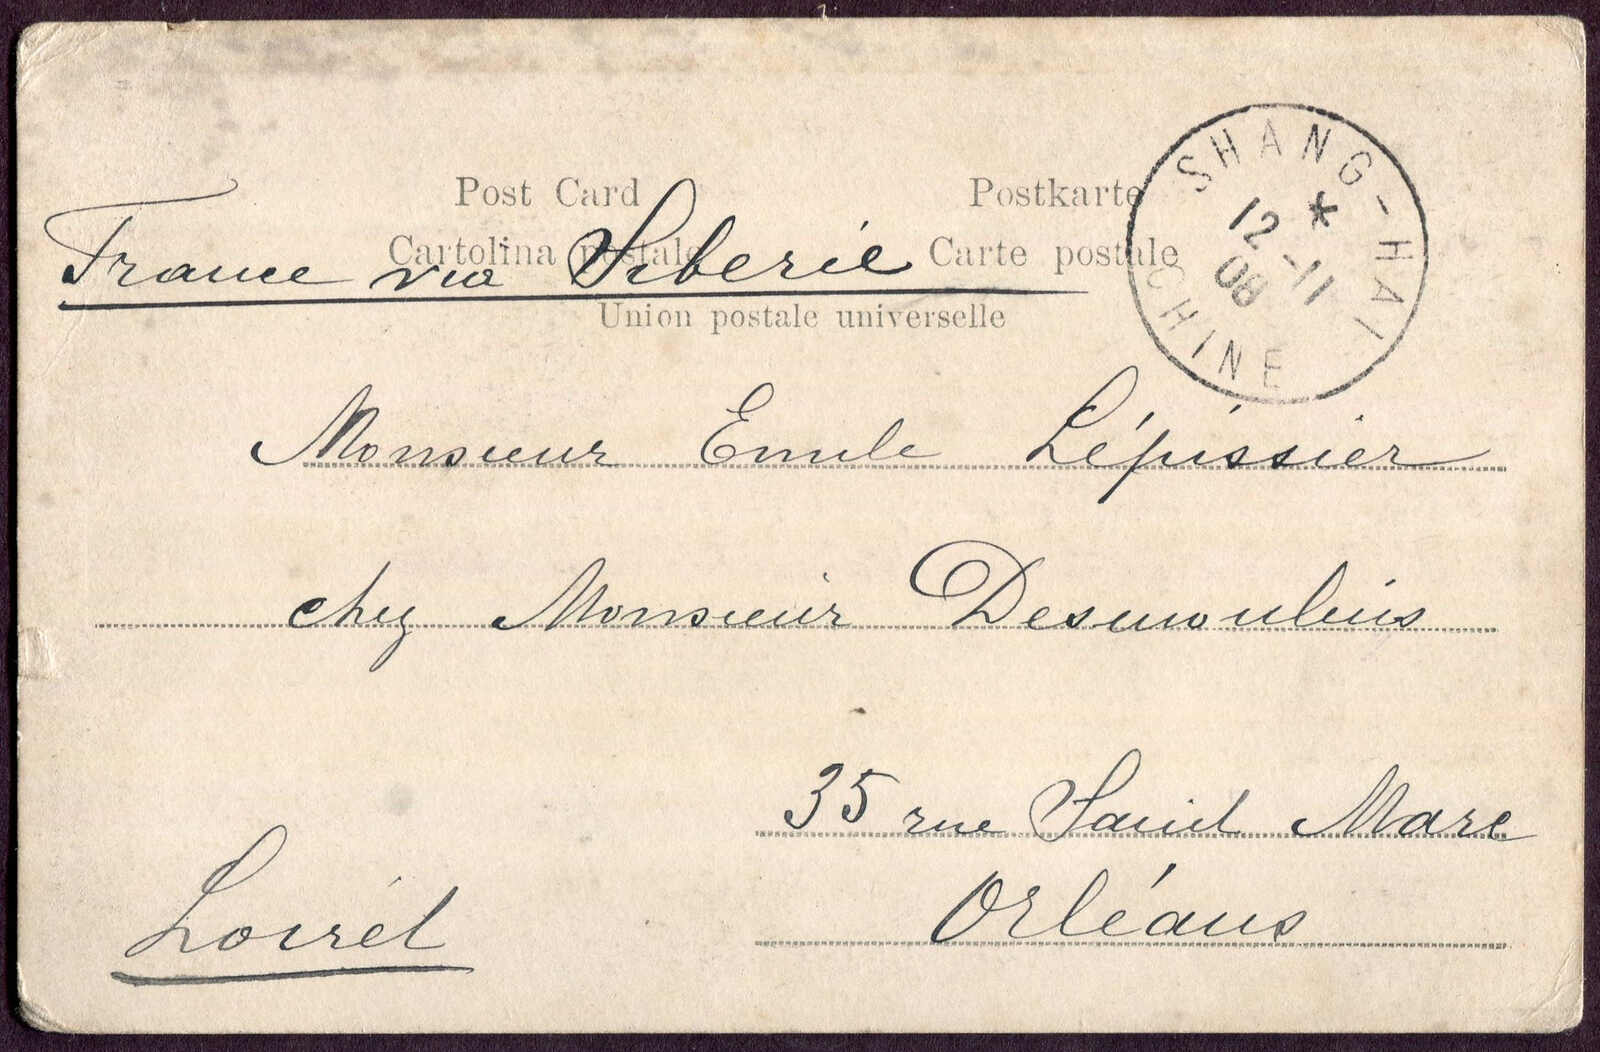 Post Card
Postkarte
Cartolina postale
Carte postale
France via Siberie
Union postale universelle
SHANG-HAI
*
12 -11
08
CHINE
Monsieur Emile Lépissier
chez Monsieur Desmoulins
35 rue Saint Marc
Orléans
Loirét